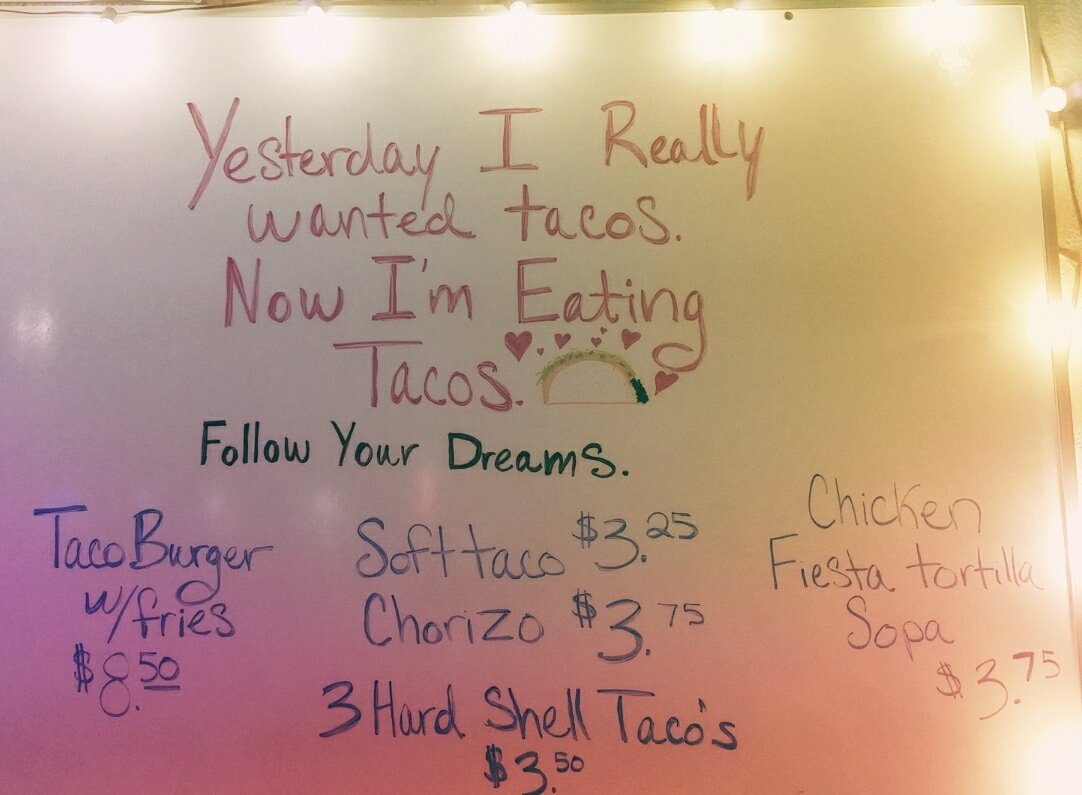 Yesterday I Really
wanted tacos.
Now I'm Eating
Tacos.
Follow Your Dreams.
Taco Burger
w/fries
$8.50
Soft taco $3.25
Chorizo $3.75
3 Hard Shell Taco's
$3.50
Chicken
Fiesta tortilla
Sopa
$3.75